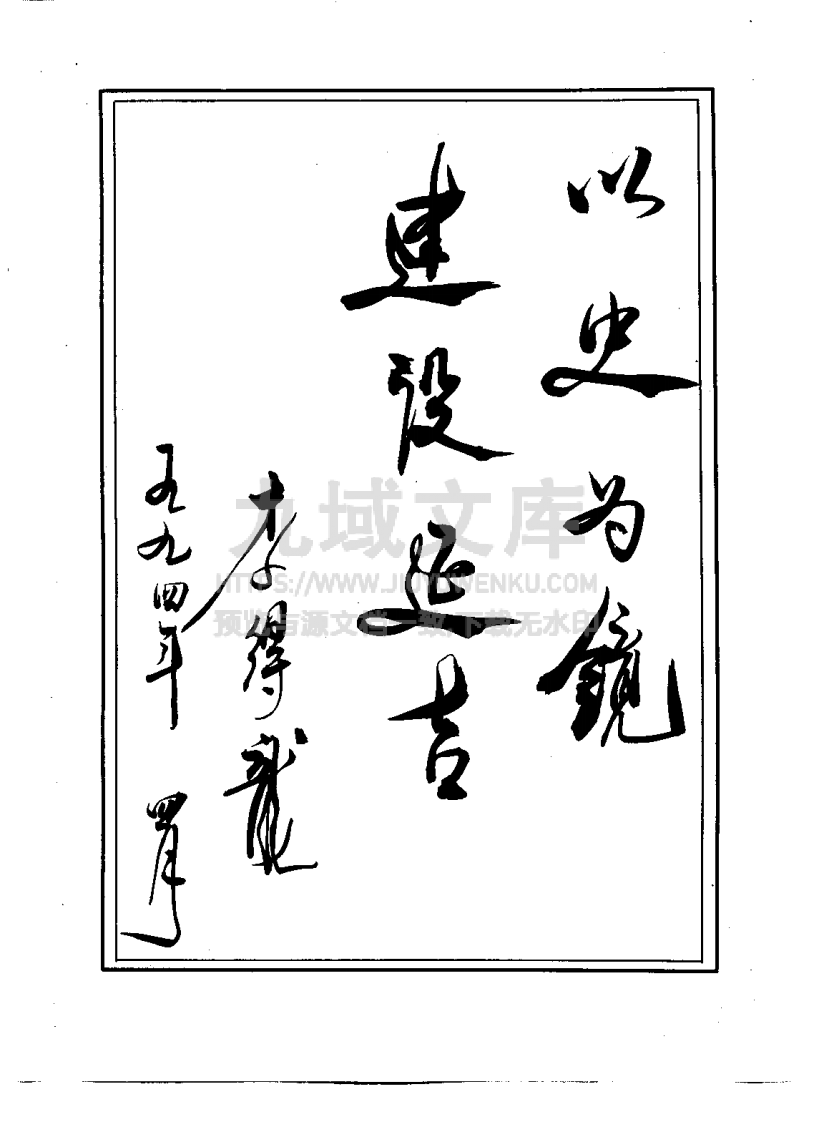 以史为镜
建设延吉
李得龍
一九九四年 四月
九域文库
HTTPS://WWW.JIUYUWENKU.COM
预览与源文档一致,下载无水印